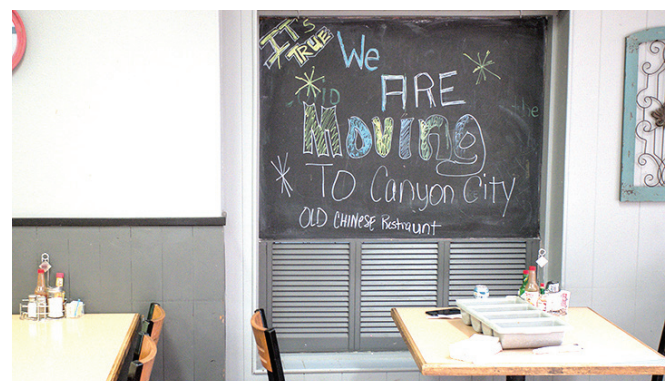 IT'S
TRUE
We
ARE
Moving
To Canyon City
OLD CHINESE Restraunt